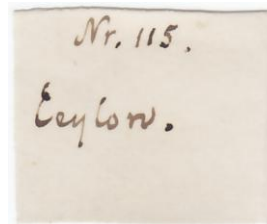 Nr. 115.
Ceylon.